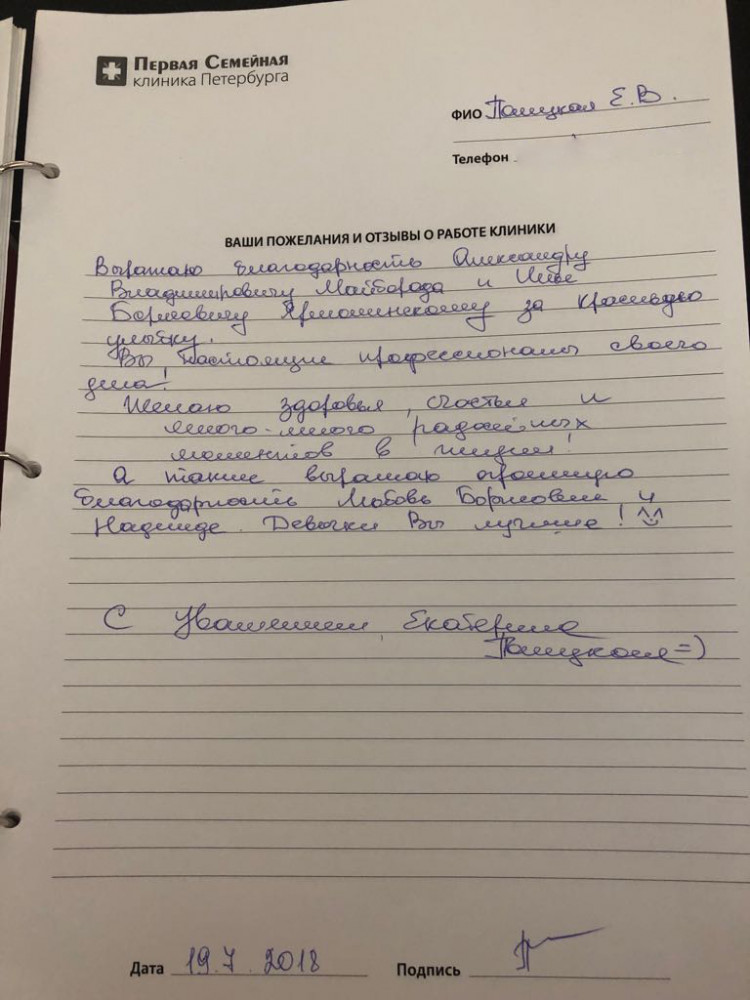 Первая Семейная
клиника Петербурга
ФИО Е.В.
Телефон
ВАШИ ПОЖЕЛАНИЯ И ОТЗЫВЫ О РАБОТЕ КЛИНИКИ
Выражаю благодарность Александру
Владимировичу Майборода и
Борисовичу за красивую
улыбку.
Вы настоящие профессионалы своего
дела!
Желаю здоровья, счастья и
много-много радостных
моментов в жизни!
А также выражаю огромную
благодарность Любовь Борисовне и
Надежде. Девочки Вы лучшие! ^^
С Уважением, Екатерина
=)
Дата 19.7.2018 Подпись